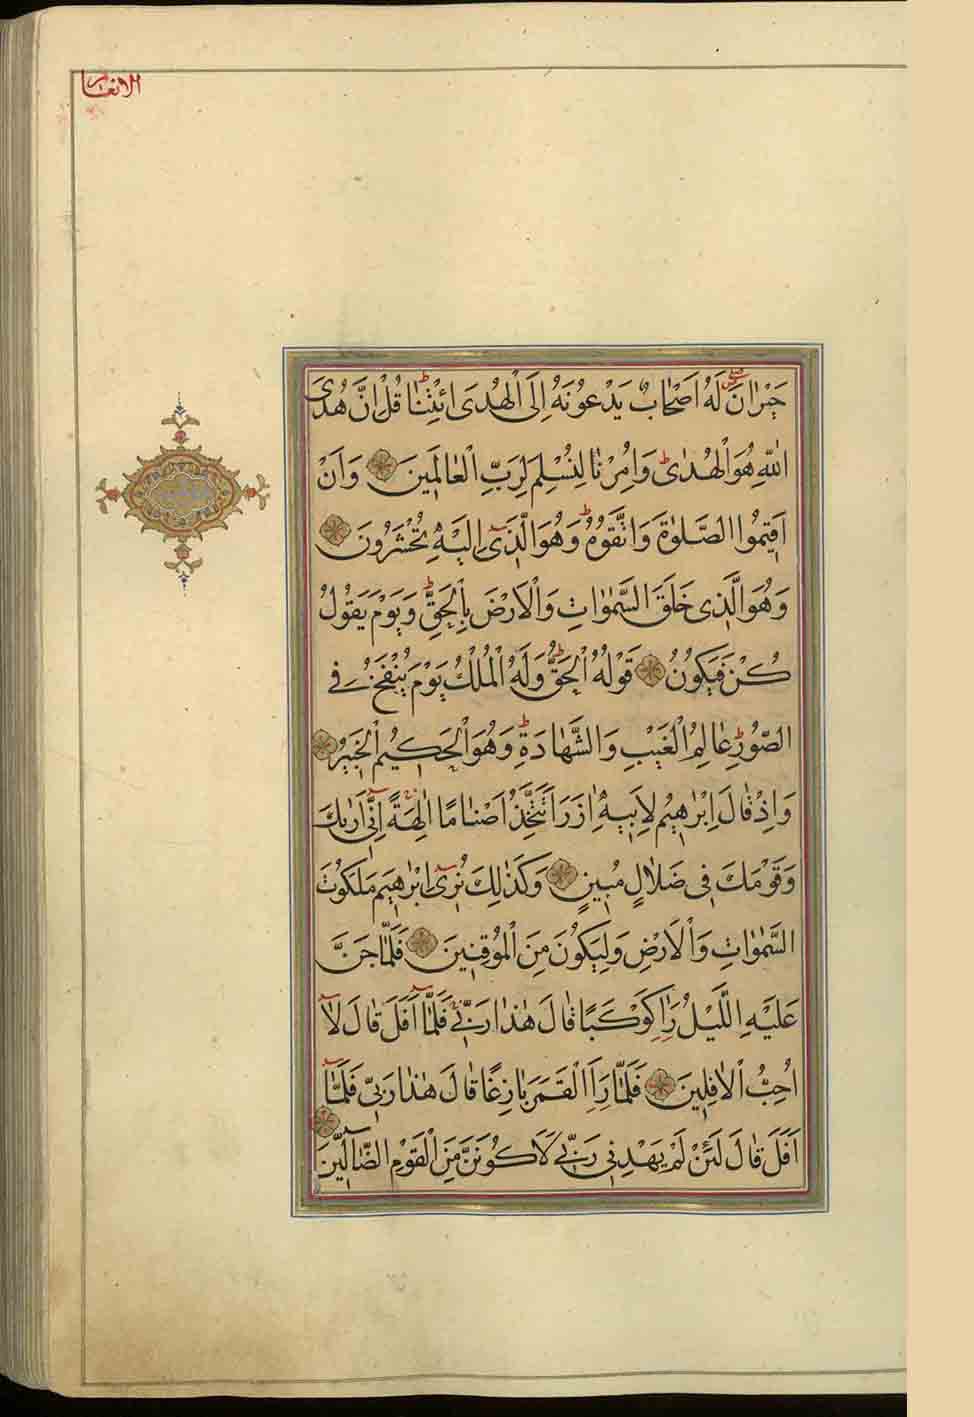 الانعام
حَيْرَانَ لَهُ اَصْحَابٌ يَدْعُونَهُ اِلَى الْهُدَى ائْتِنَا قُلْ اِنَّ هُدَى
اللّٰهِ هُوَ الْهُدٰى وَاُمِرْنَا لِنُسْلِمَ لِرَبِّ الْعَالَمِينَ وَاَنْ
اَقِيمُوا الصَّلٰوةَ وَاتَّقُوهُ وَهُوَ الَّذِى اِلَيْهِ تُحْشَرُونَ
وَهُوَ الَّذِى خَلَقَ السَّمٰوَاتِ وَالْاَرْضَ بِالْحَقِّ وَيَوْمَ يَقُولُ
كُنْ فَيَكُونُ قَوْلُهُ الْحَقُّ وَلَهُ الْمُلْكُ يَوْمَ يُنْفَخُ فِى
الصُّورِ عَالِمُ الْغَيْبِ وَالشَّهَادَةِ وَهُوَ الْحَكِيمُ الْخَبِيرُ
وَاِذْ قَالَ اِبْرٰهِيمُ لِاَبِيهِ اٰزَرَ اَتَتَّخِذُ اَصْنَامًا اٰلِهَةً اِنِّى اَرٰيكَ
وَقَوْمَكَ فِى ضَلَالٍ مُبِينٍ وَكَذٰلِكَ نُرِى اِبْرٰهِيمَ مَلَكُوتَ
السَّمٰوَاتِ وَالْاَرْضِ وَلِيَكُونَ مِنَ الْمُوقِنِينَ فَلَمَّا جَنَّ
عَلَيْهِ اللَّيْلُ رَاٰ كَوْكَبًا قَالَ هٰذَا رَبِّى فَلَمَّا اَفَلَ قَالَ لَا
اُحِبُّ الْاٰفِلِينَ فَلَمَّا رَاَ الْقَمَرَ بَازِغًا قَالَ هٰذَا رَبِّى فَلَمَّا
اَفَلَ قَالَ لَئِنْ لَمْ يَهْدِنِى رَبِّى لَاَكُونَنَّ مِنَ الْقَوْمِ الضَّالِّينَ